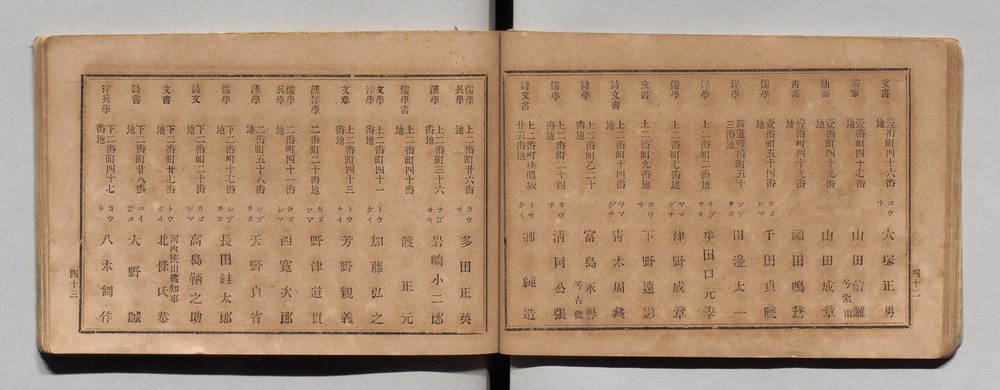 文書 壹番町四十六番地 コウチ 大塚正男
書家 壹番町四十七番地 山田信雖 号紫山
油畫 壹番町四十九番地 山田成章
書畫 壹番町四十九番地 福田鳴鵞
儒學 壹番町五十四番地 カズシマ 千田貞
洋學 新道壹番町五十三番地 シヅ 田邊太一
洋學 上二番町二番地 ナガサキ 牟田口元學
儒學 上二番町七番地 ヤマグチ 津野成章
文書 上二番町九番地 カウチ 下野遠影
詩文書 上二番町十四番地 ヤマグチ 青木周藏
詩學 上二番町乙二十番地 富島永譽 号右
儒學 上二番町二十四番地 カウチ 清岡公張
詩文書 上二番町法眼坂廿五番地 トウケイ 鄕純造
四十二
儒學兵學 上二番町廿六番地 カウチ 多田正英
漢學 上二番町三十六番地 ナガサキ 岩崎小二郎
儒學書 上二番町四十番地 渡正元
文學洋學 上二番町四十一番地 トウケイ 加藤弘之
文章 上二番町四十三番地 トウケイ 芳野親義
漢洋學 二番町二十番地 カゴシマ 野津道貫
儒學兵學 二番町四十一番地 カゴシマ 西寬次郎
漢學 二番町五十八番地 シヅ 天野貞省
儒學 下二番町十七番地 シヅ 長田銈太郎
詩文 下二番町二十番地 カゴシマ 高島鞆之助
文書 下二番町廿七番地 トウケイ 河內狹山舊知事 北條氏恭
詩書 下二番町廿八番地 ニイガタ 大野誠
洋兵學 下二番町四十七番地 カウチ 八木飼作
四十三